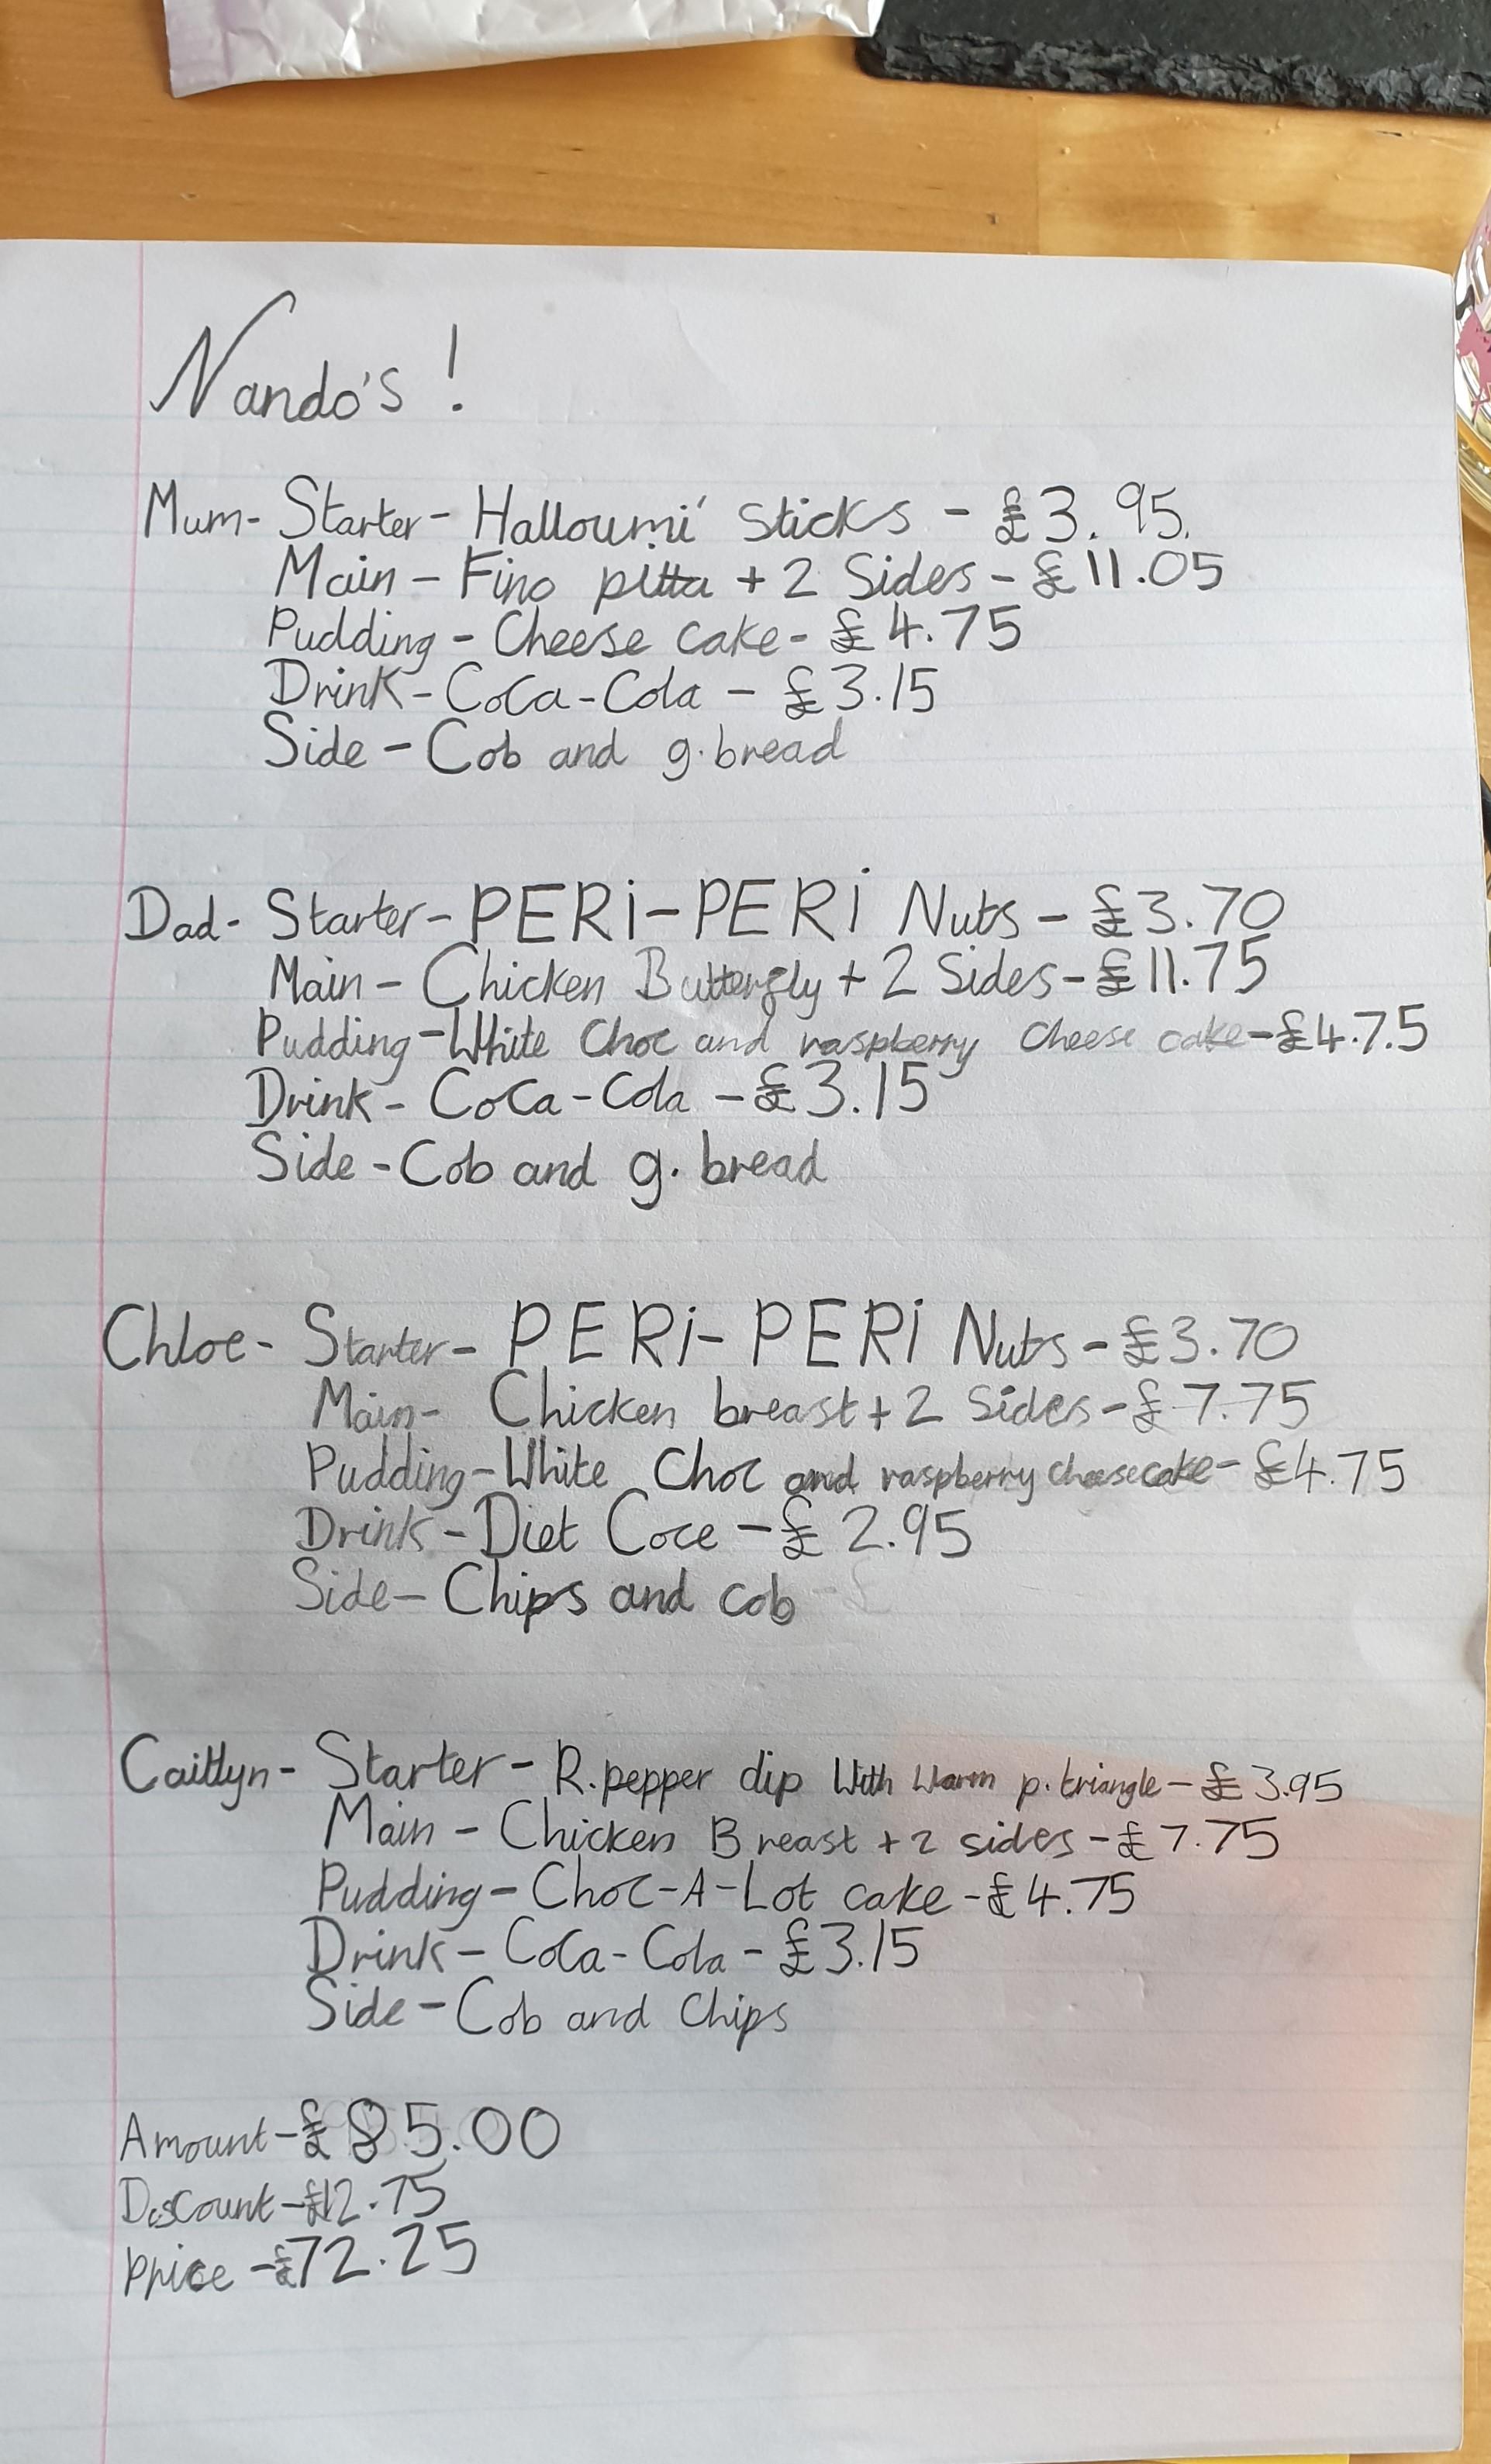 Nando's !
Mum- Starter- Halloumi sticks - £3.95.
Main - Fino pitta + 2 Sides - £11.05
Pudding - Cheese cake - £4.75
Drink - Coca-Cola - £3.15
Side - Cob and g.bread
Dad- Starter - PERi-PERi Nuts - £3.70
Main - Chicken Butterfly + 2 Sides - £11.75
Pudding - White Choc and raspberry Cheese cake - £4.7.5
Drink - Coca-Cola - £3.15
Side - Cob and g. bread
Chloe- Starter - PERi-PERi Nuts - £3.70
Main- Chicken breast + 2 Sides - £7.75
Pudding - White Choc and raspberry cheesecake - £4.75
Drink - Diet Coce - £2.95
Side - Chips and cob - £
Caitlyn- Starter - R.pepper dip With Warm p.triangle - £3.95
Main - Chicken Breast + 2 sides - £7.75
Pudding - Choc-A-Lot cake - £4.75
Drink - Coca-Cola - £3.15
Side - Cob and Chips
Amount - £85.00
Discount - £12.75
Price - £72.25